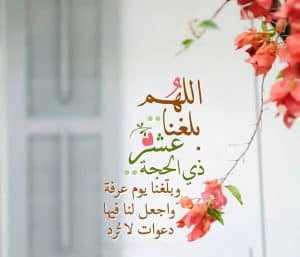 اللهُم
بلغنا..
عشر
ذي الحجة..
وبلّغنا يوم عرفة
واجعل لنا فيها
دعوات لا تُرد